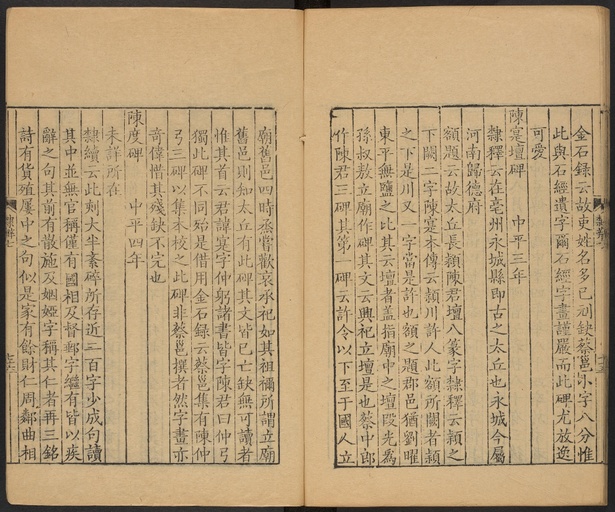 金石錄云故吏姓名多已刓缺蔡邕小字八分惟
此與石經遺字爾石經字畫謹嚴而此碑尤放逸
可愛
陳寔壇碑　中平三年
隸釋云在亳州永城縣即古之太丘也永城今屬
河南歸德府
額題云故太丘長潁陳君壇八篆字隸釋云潁之
下闕二字陳寔本傳云潁川許人此額所闕者潁
之下是川又一字當是許也額之題郡邑猶劉曜
東平無鹽之比其云壇者蓋指廟中之壇叚光為
孫叔敖立廟作碑其文云興祀立壇是也蔡中郎
作陳君三碑其第一碑云許令以下至于國人立
廟舊邑四時烝嘗歡哀承祀如其祖禰所謂立廟
舊邑則知太丘有此碑其文皆已亡缺無可讀者
惟其首云君諱寔字仲躬諸書皆字陳君曰仲弓
獨此碑不同殆是借用金石錄云蔡邕集有陳仲
弓三碑以集本校之此碑非蔡邕撰者然字畫亦
奇偉惜其殘缺不完也
陳度碑　中平四年
未詳所在
隸續云此刻大半紊碎所存近三百字少成句讀
其中並無官稱僅有國相及督郵字繼有皆以疾
辭之句其前有散施及姻婭字稱其仁者再三銘
詩有貨殖屢中之句似是家有餘財仁周鄰曲相